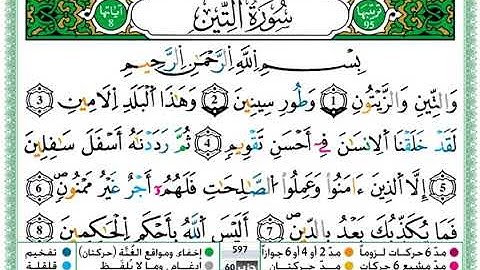 ترتيبها 95
سُورَةُ التِّينِ
آياتها 8
بِسْمِ اللَّهِ الرَّحْمَٰنِ الرَّحِيمِ
وَالتِّينِ وَالزَّيْتُونِ 1 وَطُورِ سِينِينَ 2 وَهَٰذَا الْبَلَدِ الْأَمِينِ 3
لَقَدْ خَلَقْنَا الْإِنسَانَ فِي أَحْسَنِ تَقْوِيمٍ 4 ثُمَّ رَدَدْنَاهُ أَسْفَلَ سَافِلِينَ
5 إِلَّا الَّذِينَ ءَامَنُوا وَعَمِلُوا الصَّالِحَاتِ فَلَهُمْ أَجْرٌ غَيْرُ مَمْنُونٍ 6
فَمَا يُكَذِّبُكَ بَعْدُ بِالدِّينِ 7 أَلَيْسَ اللَّهُ بِأَحْكَمِ الْحَاكِمِينَ 8
مدّ 6 حركات لزوماً مدّ 2 أو 4 أو 6 جوازاً 597 إخفاء، ومواقع الغُنَّة (حركتان) تفخيم
مدّ مشبع 6 حركات مدّ حركتان 60 إدغام، وما لا يُلفَظ قلقلة